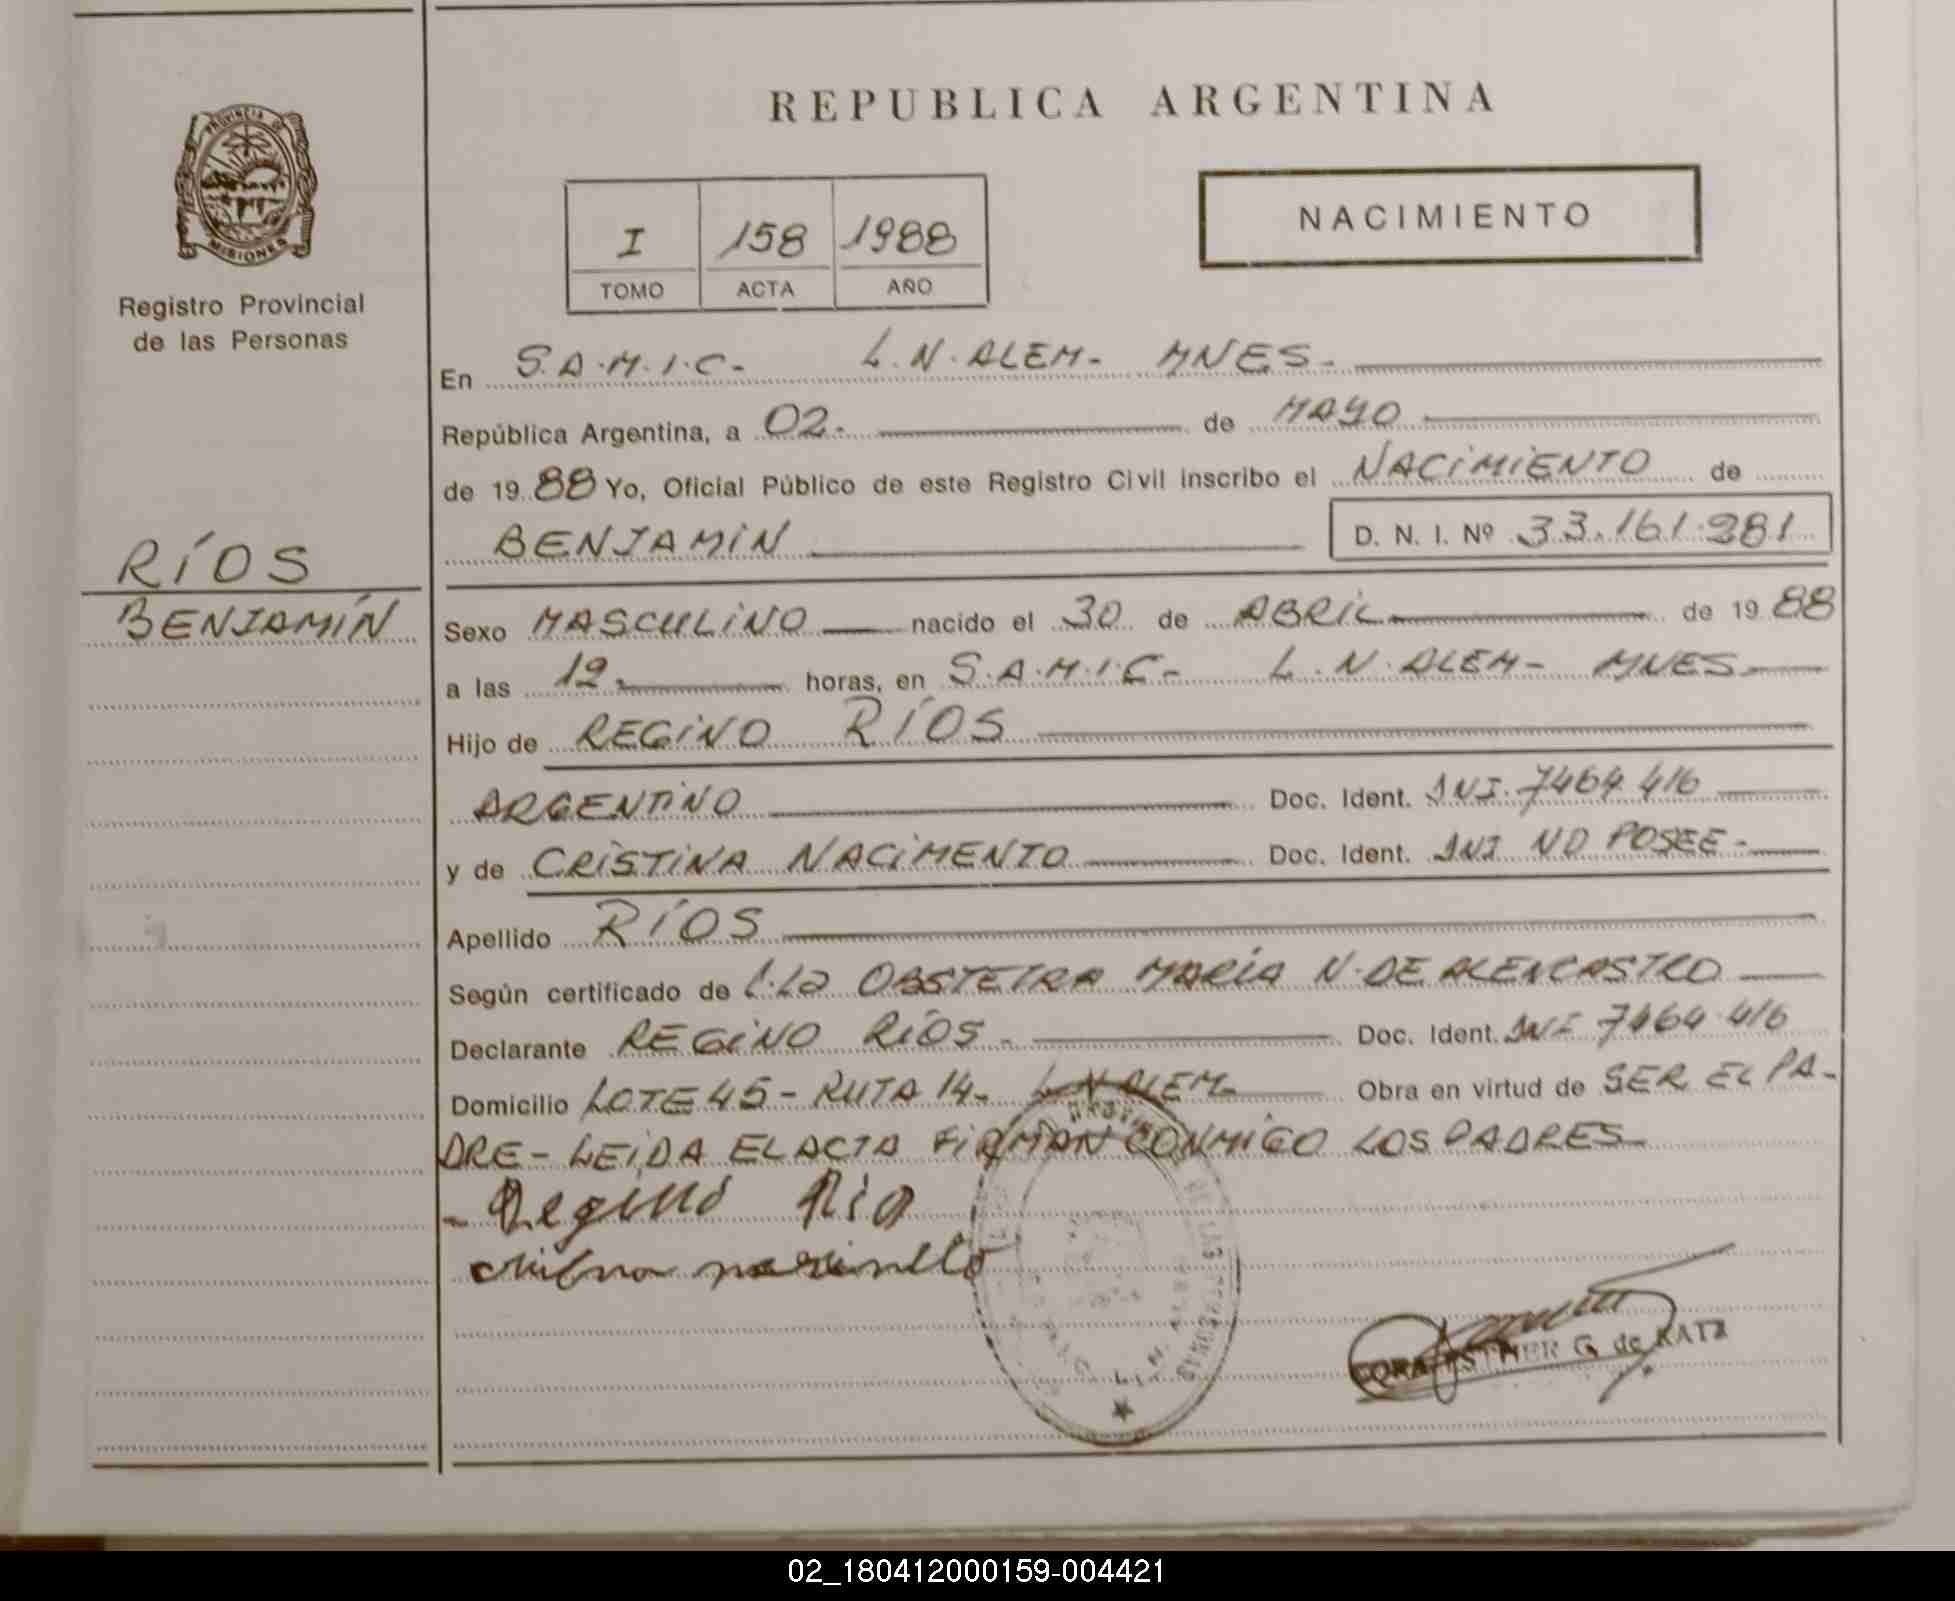 REPUBLICA ARGENTINA
PROVINCIA DE MISIONES
Registro Provincial
de las Personas
NACIMIENTO
I 158 1988
TOMO ACTA AÑO
En S.A.M.I.C- L.N.ALEM- MNES-
República Argentina, a 02- de MAYO
de 1988 Yo, Oficial Público de este Registro Civil inscribo el NACIMIENTO de
BENJAMIN D. N. I. Nº 33.161.281
RÍOS
BENJAMÍN
Sexo MASCULINO nacido el 30 de ABRIL de 1988
a las 12 horas, en S.A.M.I.C- L.N.ALEM- MNES-
Hijo de REGINO RÍOS
ARGENTINO Doc. Ident. DNI. 7464 416
y de CRISTINA NACIMENTO Doc. Ident. DNI NO POSEE-
Apellido RÍOS
Según certificado de LA OBSTETRA MARÍA N. DE ALENCASTRO
Declarante REGINO RÍOS- Doc. Ident. DNI 7464.416
Domicilio LOTE 45- RUTA 14- L.N ALEM- Obra en virtud de SER EL PA-
DRE- LEIDA EL ACTA FIRMAN CONMIGO LOS PADRES-
- Regino Rio
DE LAS PERSONAS
ESTHER G. de KATZ
02_180412000159-004421